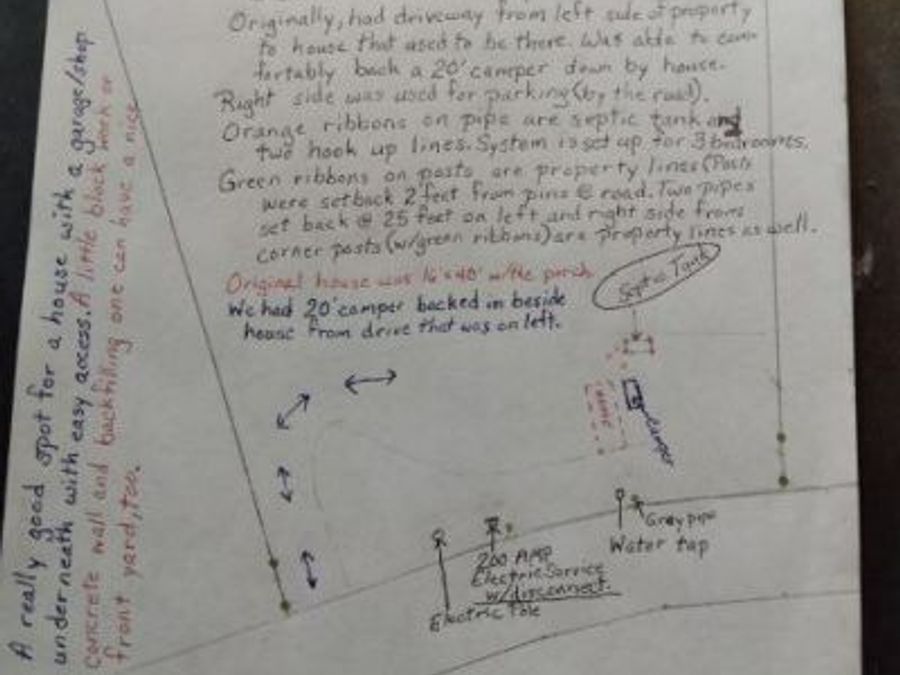 Originally, had driveway from left side of property
to house that used to be there. Was able to com-
fortably back a 20' camper down by house.
Right side was used for parking (by the road).
Orange ribbons on pipe are septic tank and
two hook up lines. System is set up for 3 bedrooms.
Green ribbons on posts are property lines (Posts
were setback 2 feet from pins @ road. Two pipes
set back @ 25 feet on left and right side from
corner posts (w/green ribbons) are property lines as well.
Original house was 16'x40' w/the porch
We had 20' camper backed in beside
house from drive that was on left.
Septic Tank
House
Camper
Gray pipe
Water tap
200 AMP
Electric Service
w/disconnect.
Electric Pole
A really good spot for a house with a garage/shop
underneath with easy access. A little block work or
concrete wall and backfilling one can have a nice
front yard, too.